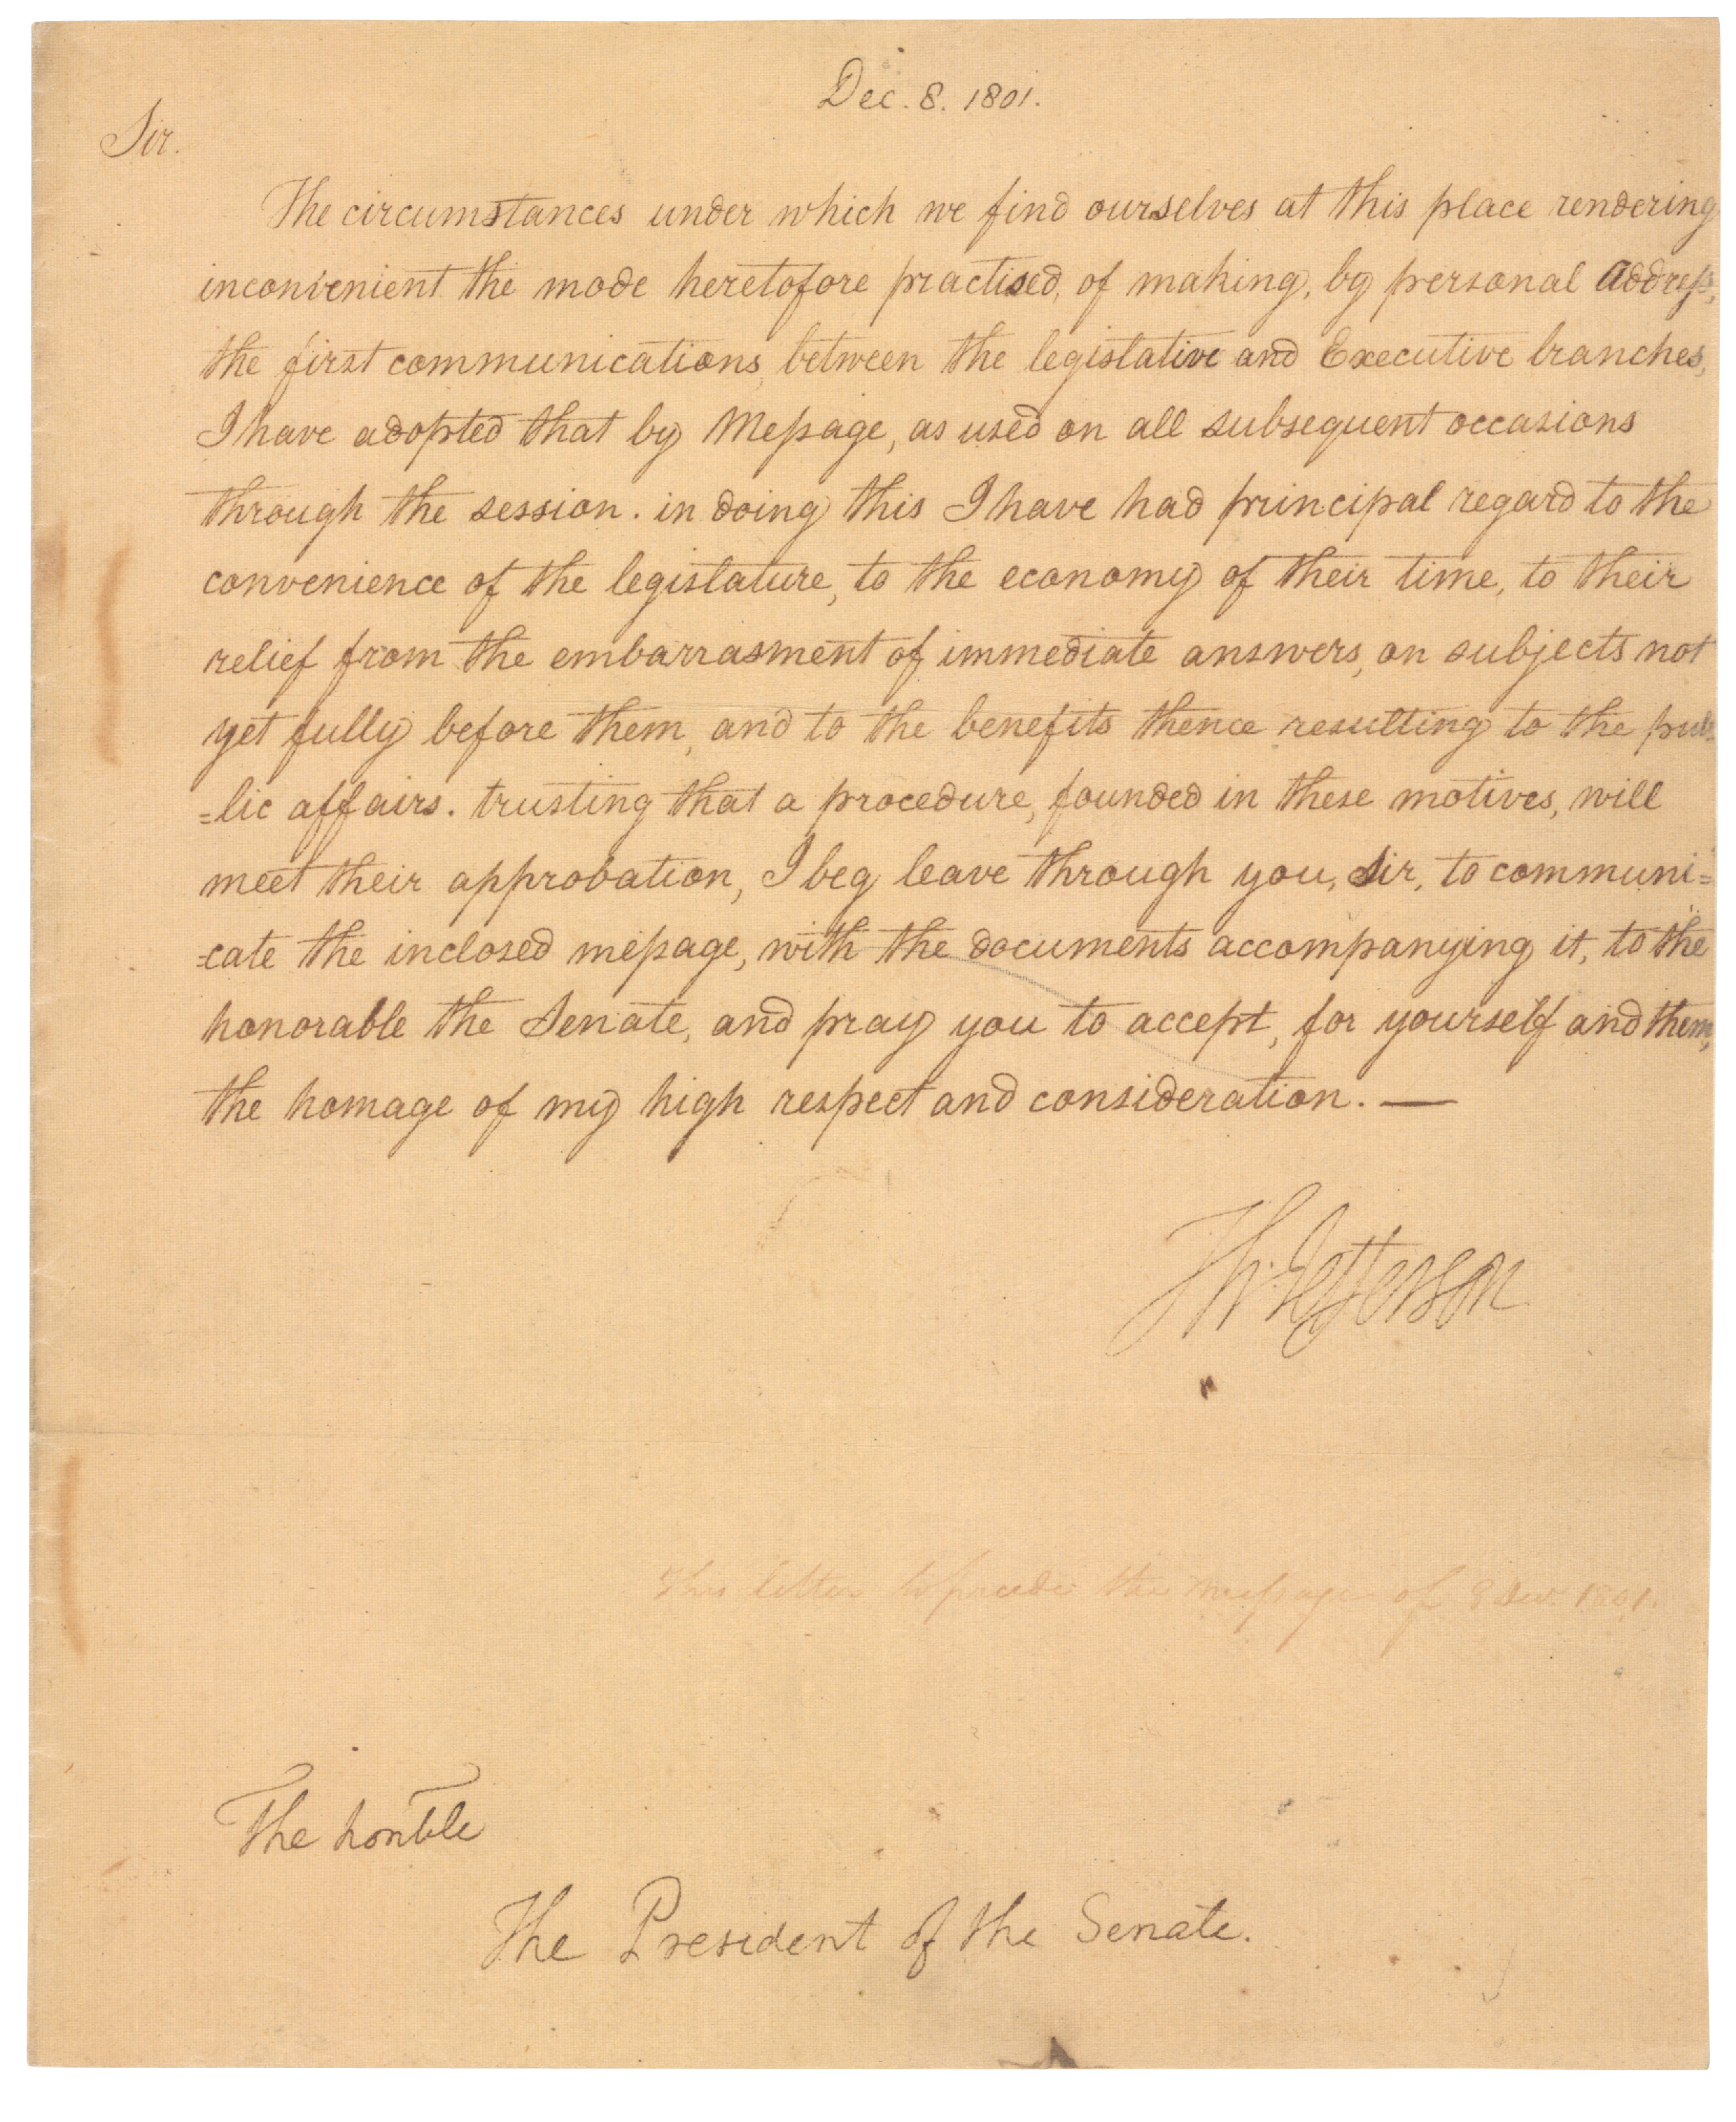 Dec. 8. 1801.
Sir.
The circumstances under which we find ourselves at this place rendering
inconvenient the mode heretofore practised, of making, by personal Address,
the first communications, between the legislative and Executive branches,
I have adopted that by Message, as used on all subsequent occasions
through the session. in doing this I have had principal regard to the
convenience of the legislature, to the economy of their time, to their
relief from the embarrasment of immediate answers, on subjects not
yet fully before them, and to the benefits thence resulting to the pub-
=lic affairs. trusting that a procedure, founded in these motives, will
meet their approbation, I beg leave through you, Sir, to communi=
=cate the inclosed message, with the documents accompanying it, to the
honorable the Senate, and pray you to accept, for yourself and them,
the homage of my high respect and consideration. —
Th: Jefferson
This letter to precede the message of 8 Dec. 1801.
The honble
The President of the Senate.